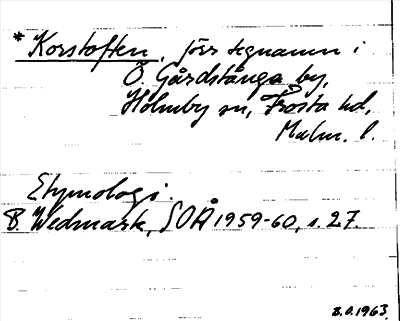 * Korstoften, förr ägonamn i
Ö. Gårdstånga by,
Holmby sn, Frosta hd,
Malm. l.
Etymologi.
B. Wedmark, SOÅ 1959-60, s. 27.
B.O. 1963